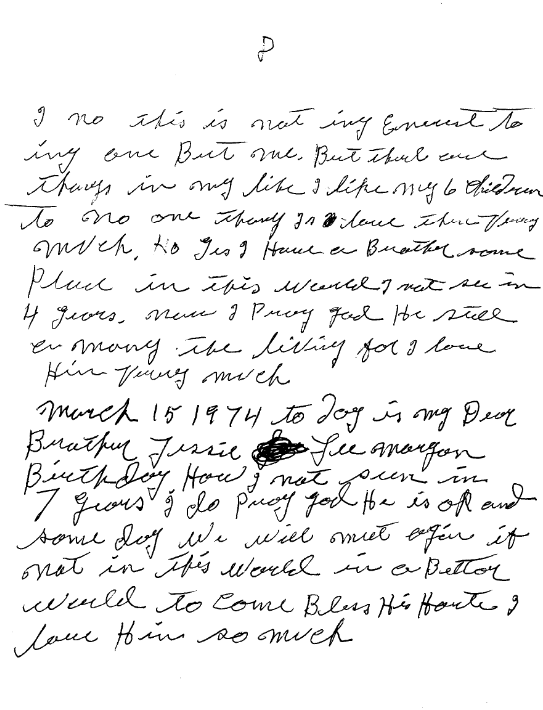 2
I no this is not ing Enerest to
ing one But me. But thar are
thangs in my life I like my 6 Children
to no one thang Is I love them Verry
much. to Yes I Have a Brother some
Place in this world I not see in
4 Years. now I Pray god He still
a mong the living for I love
Him Verry much
March 15 1974 to Day is my Dear
Brother Jessie Lee Morgan
Birth Day How I not seen in
7 Years I do Pray god He is ok and
some day we will meet agin if
not in this world in a Better
world to come Bless His Harte I
love Him so much